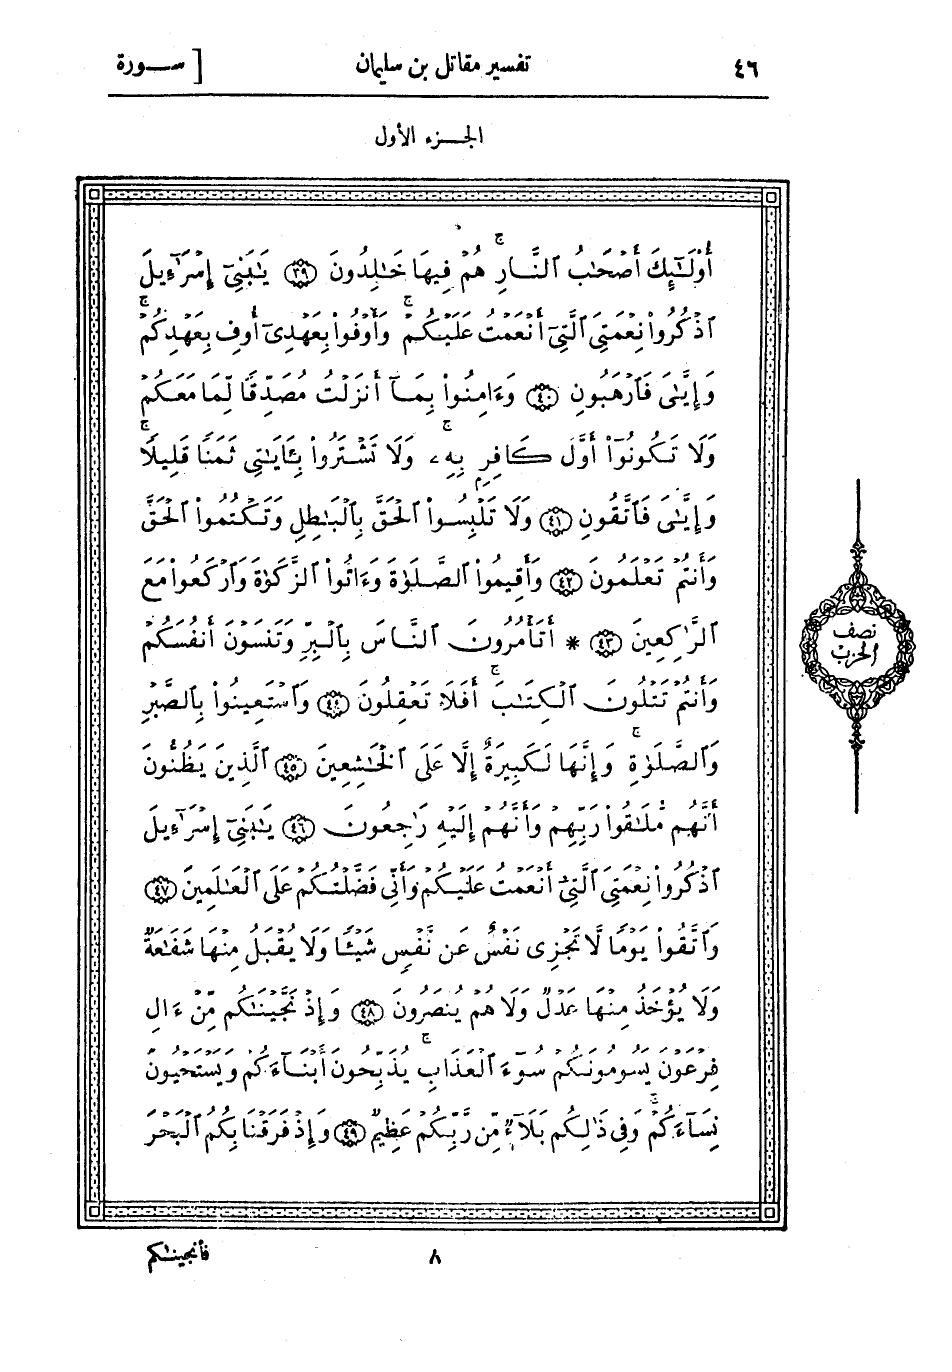 ٤٦ تفسير مقاتل بن سليمان [ ســورة
الجــزء الأول
أُوْلَٰٓئِكَ أَصْحَٰبُ ٱلنَّارِ ۚ هُمْ فِيهَا خَٰلِدُونَ ٣٩ يَٰبَنِىٓ إِسْرَٰٓءِيلَ
ٱذْكُرُواْ نِعْمَتِىَ ٱلَّتِىٓ أَنْعَمْتُ عَلَيْكُمْ ۚ وَأَوْفُواْ بِعَهْدِىٓ أُوفِ بِعَهْدِكُمْ ۚ
وَإِيَّٰىَ فَٱرْهَبُونِ ٤٠ وَءَامِنُواْ بِمَآ أَنزَلْتُ مُصَدِّقًا لِّمَا مَعَكُمْ ۚ
وَلَا تَكُونُوٓاْ أَوَّلَ كَافِرٍ بِهِۦ ۚ وَلَا تَشْتَرُواْ بِـَٔايَٰتِى ثَمَنًا قَلِيلًا ۚ
وَإِيَّٰىَ فَٱتَّقُونِ ٤١ وَلَا تَلْبِسُواْ ٱلْحَقَّ بِٱلْبَٰطِلِ وَتَكْتُمُواْ ٱلْحَقَّ
وَأَنتُمْ تَعْلَمُونَ ٤٢ وَأَقِيمُواْ ٱلصَّلَوٰةَ وَءَاتُواْ ٱلزَّكَوٰةَ وَٱرْكَعُواْ مَعَ
ٱلرَّٰكِعِينَ ٤٣ * أَتَأْمُرُونَ ٱلنَّاسَ بِٱلْبِرِّ وَتَنسَوْنَ أَنفُسَكُمْ
وَأَنتُمْ تَتْلُونَ ٱلْكِتَٰبَ ۚ أَفَلَا تَعْقِلُونَ ٤٤ وَٱسْتَعِينُواْ بِٱلصَّبْرِ
وَٱلصَّلَوٰةِ ۚ وَإِنَّهَا لَكَبِيرَةٌ إِلَّا عَلَى ٱلْخَٰشِعِينَ ٤٥ ٱلَّذِينَ يَظُنُّونَ
أَنَّهُم مُّلَٰقُواْ رَبِّهِمْ وَأَنَّهُمْ إِلَيْهِ رَٰجِعُونَ ٤٦ يَٰبَنِىٓ إِسْرَٰٓءِيلَ
ٱذْكُرُواْ نِعْمَتِىَ ٱلَّتِىٓ أَنْعَمْتُ عَلَيْكُمْ وَأَنِّى فَضَّلْتُكُمْ عَلَى ٱلْعَٰلَمِينَ ٤٧
وَٱتَّقُواْ يَوْمًا لَّا تَجْزِى نَفْسٌ عَن نَّفْسٍ شَيْـًٔا وَلَا يُقْبَلُ مِنْهَا شَفَٰعَةٌ
وَلَا يُؤْخَذُ مِنْهَا عَدْلٌ وَلَا هُمْ يُنصَرُونَ ٤٨ وَإِذْ نَجَّيْنَٰكُم مِّنْ ءَالِ
فِرْعَوْنَ يَسُومُونَكُمْ سُوٓءَ ٱلْعَذَابِ ۚ يُذَبِّحُونَ أَبْنَآءَكُمْ وَيَسْتَحْيُونَ
نِسَآءَكُمْ ۚ وَفِى ذَٰلِكُم بَلَآءٌ مِّن رَّبِّكُمْ عَظِيمٌ ٤٩ وَإِذْ فَرَقْنَا بِكُمُ ٱلْبَحْرَ
نصف
الحزب
٨
فأنجيناكم